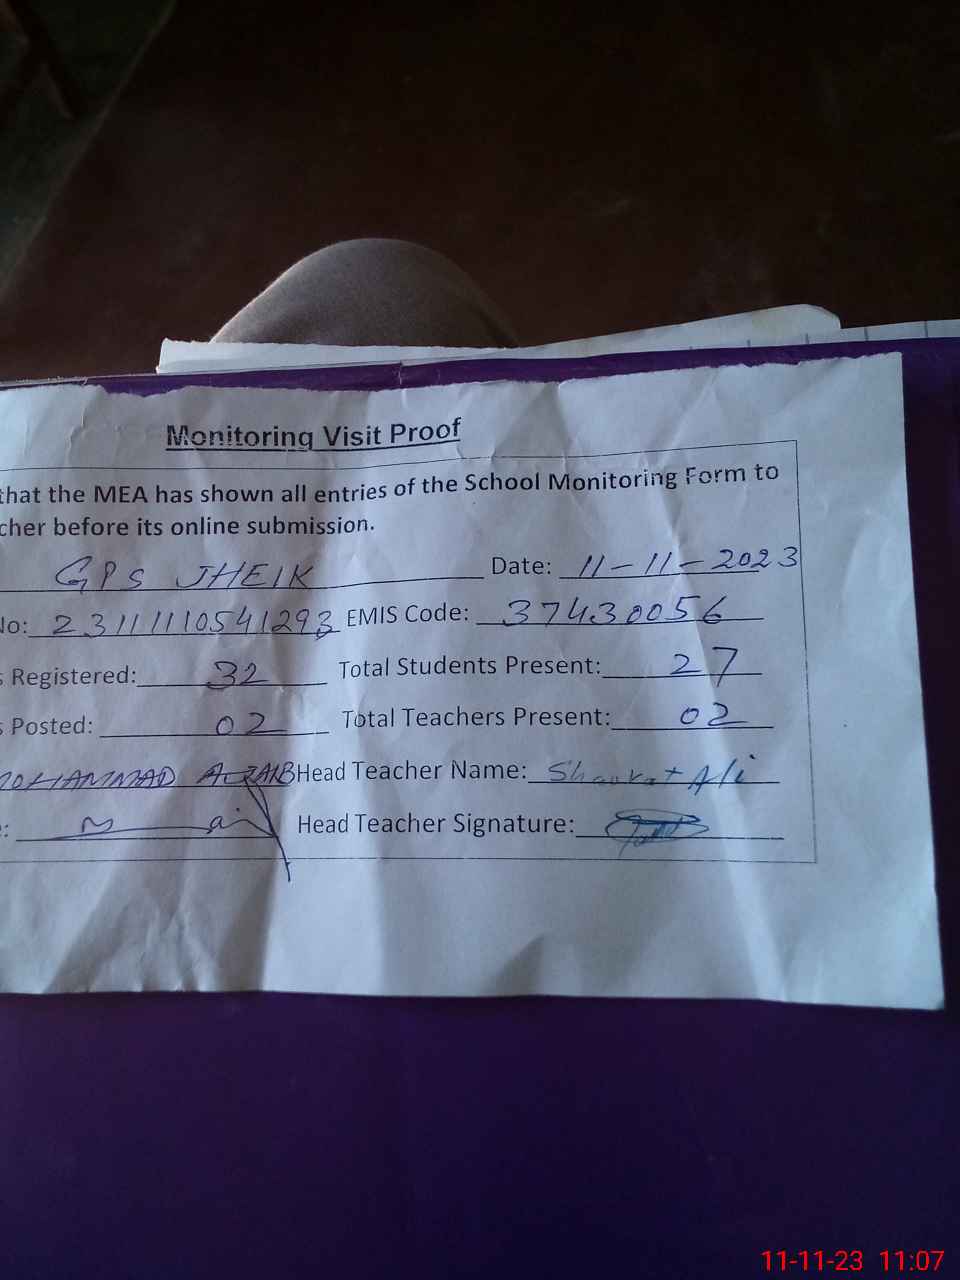 Monitoring Visit Proof
that the MEA has shown all entries of the School Monitoring Form to
cher before its online submission.
GPS JHEIK Date: 11-11-2023
No: 23111110541293 EMIS Code: 37430056
s Registered: 32 Total Students Present: 27
s Posted: 02 Total Teachers Present: 02
MOHAMMAD Head Teacher Name: Shaukat Ali
: Head Teacher Signature:
11-11-23 11:07